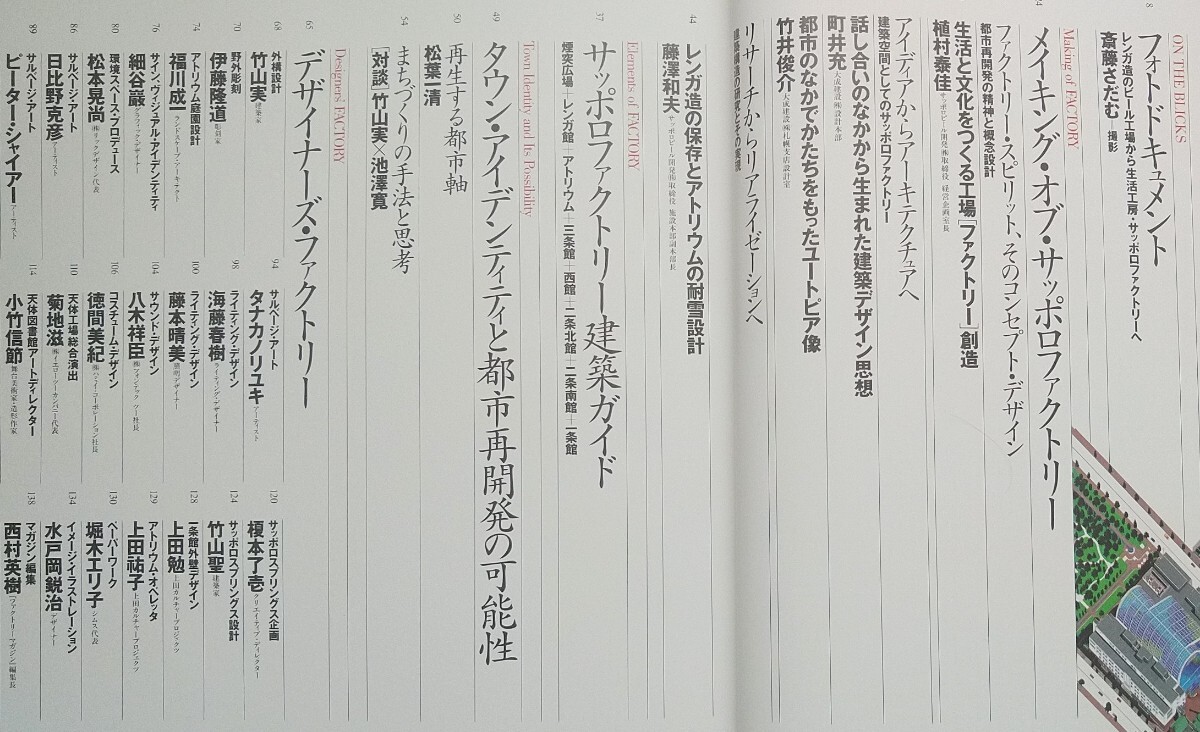 8
ON THE BLICKS
フォトドキュメント
レンガ造のビール工場から生活工房・サッポロファクトリーへ
斎藤さだむ 撮影
24
Making of FACTORY
メイキング・オブ・サッポロファクトリー
ファクトリー・スピリット、そのコンセプト・デザイン
都市再開発の精神と概念設計
生活と文化をつくる工場[ファクトリー]創造
植村泰佳 サッポロビール開発㈱取締役 経営企画室長
アイディアからアーキテクチュアへ
建築空間としてのサッポロファクトリー
話し合いのなかから生まれた建築デザイン思想
町井充 大成建設㈱設計本部
都市のなかでかたちをもったユートピア像
竹井俊介 大成建設㈱札幌支店設計室
リサーチからリアライゼーションへ
建築構造の研究とその実現
44
レンガ造の保存とアトリウムの耐雪設計
藤澤和夫 サッポロビール開発㈱取締役 施設本部副本部長
Elements of FACTORY
37
サッポロファクトリー建築ガイド
煙突広場+レンガ館+アトリウム+三条館+西館+二条北館+二条南館+一条館
Town Identity and Its Possibility
49
タウン・アイデンティティと都市再開発の可能性
50
再生する都市軸
松葉一清
54
まちづくりの手法と思考
[対談]竹山実×池澤寛
Designers' FACTORY
65
デザイナーズ・ファクトリー
68
外構設計
竹山実 建築家
70
野外彫刻
伊藤隆道 彫刻家
74
アトリウム庭園設計
福川成一 ランドスケープ・アーキテクト
76
サイン、ヴィジュアル・アイデンティティ
細谷巖 グラフィックデザイナー
80
環境スペース・プロデュース
松本晃尚 ㈱リックデザイン代表
86
サルベージ・アート
日比野克彦 アーティスト
89
サルベージ・アート
ピーター・シャイアー アーティスト
94
サルベージ・アート
タナカノリユキ アーティスト
98
ライティング・デザイン
海藤春樹 ライティング・デザイナー
100
ライティング・デザイン
藤本晴美 照明デザイナー
104
サウンド・デザイン
八木祥臣
106
コスチューム・デザイン
徳間美紀
110
天体工場総合演出
菊地滋 ㈱イエローツーカンパニー代表
114
天体図書館アートディレクター
小竹信節 舞台美術家・造形作家
120
サッポロスプリングス企画
榎本了壱 クリエイティブ・ディレクター
124
サッポロスプリングス設計
竹山聖 建築家
128
一条館外壁デザイン
上田勉 上田カルチャープロジェクツ
129
アトリウム・オペレッタ
上田祐子 上田カルチャープロジェクツ
130
ペーパーワーク
堀木エリ子 シムス代表
134
イメージ・イラストレーション
水戸岡鋭治 デザイナー
138
マガジン編集
西村英樹 「ファクトリーマガジン」編集長